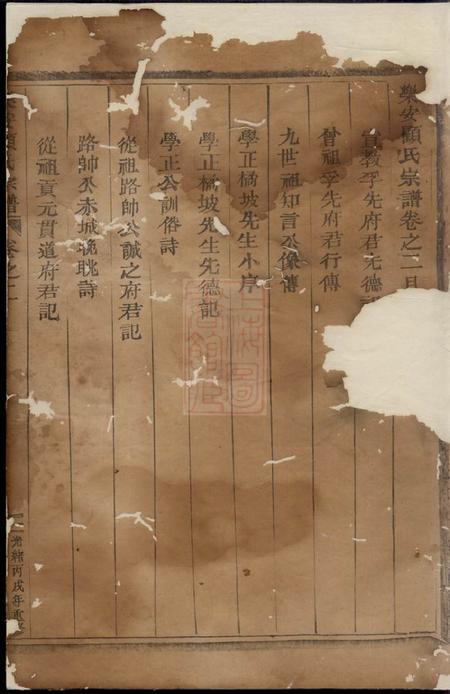 樂安顧氏宗譜卷之二目
宣教孚先府君先德
曾祖孚先府君行傳
九世祖知言公像傳
學正橘坡先生小序
學正橘坡先生先德記
學正公訓俗詩
從祖路帥公誠之府君記
路帥公赤城晚眺詩
從祖貢元貫道府君記
宗譜 卷之二
光緒丙戌年重